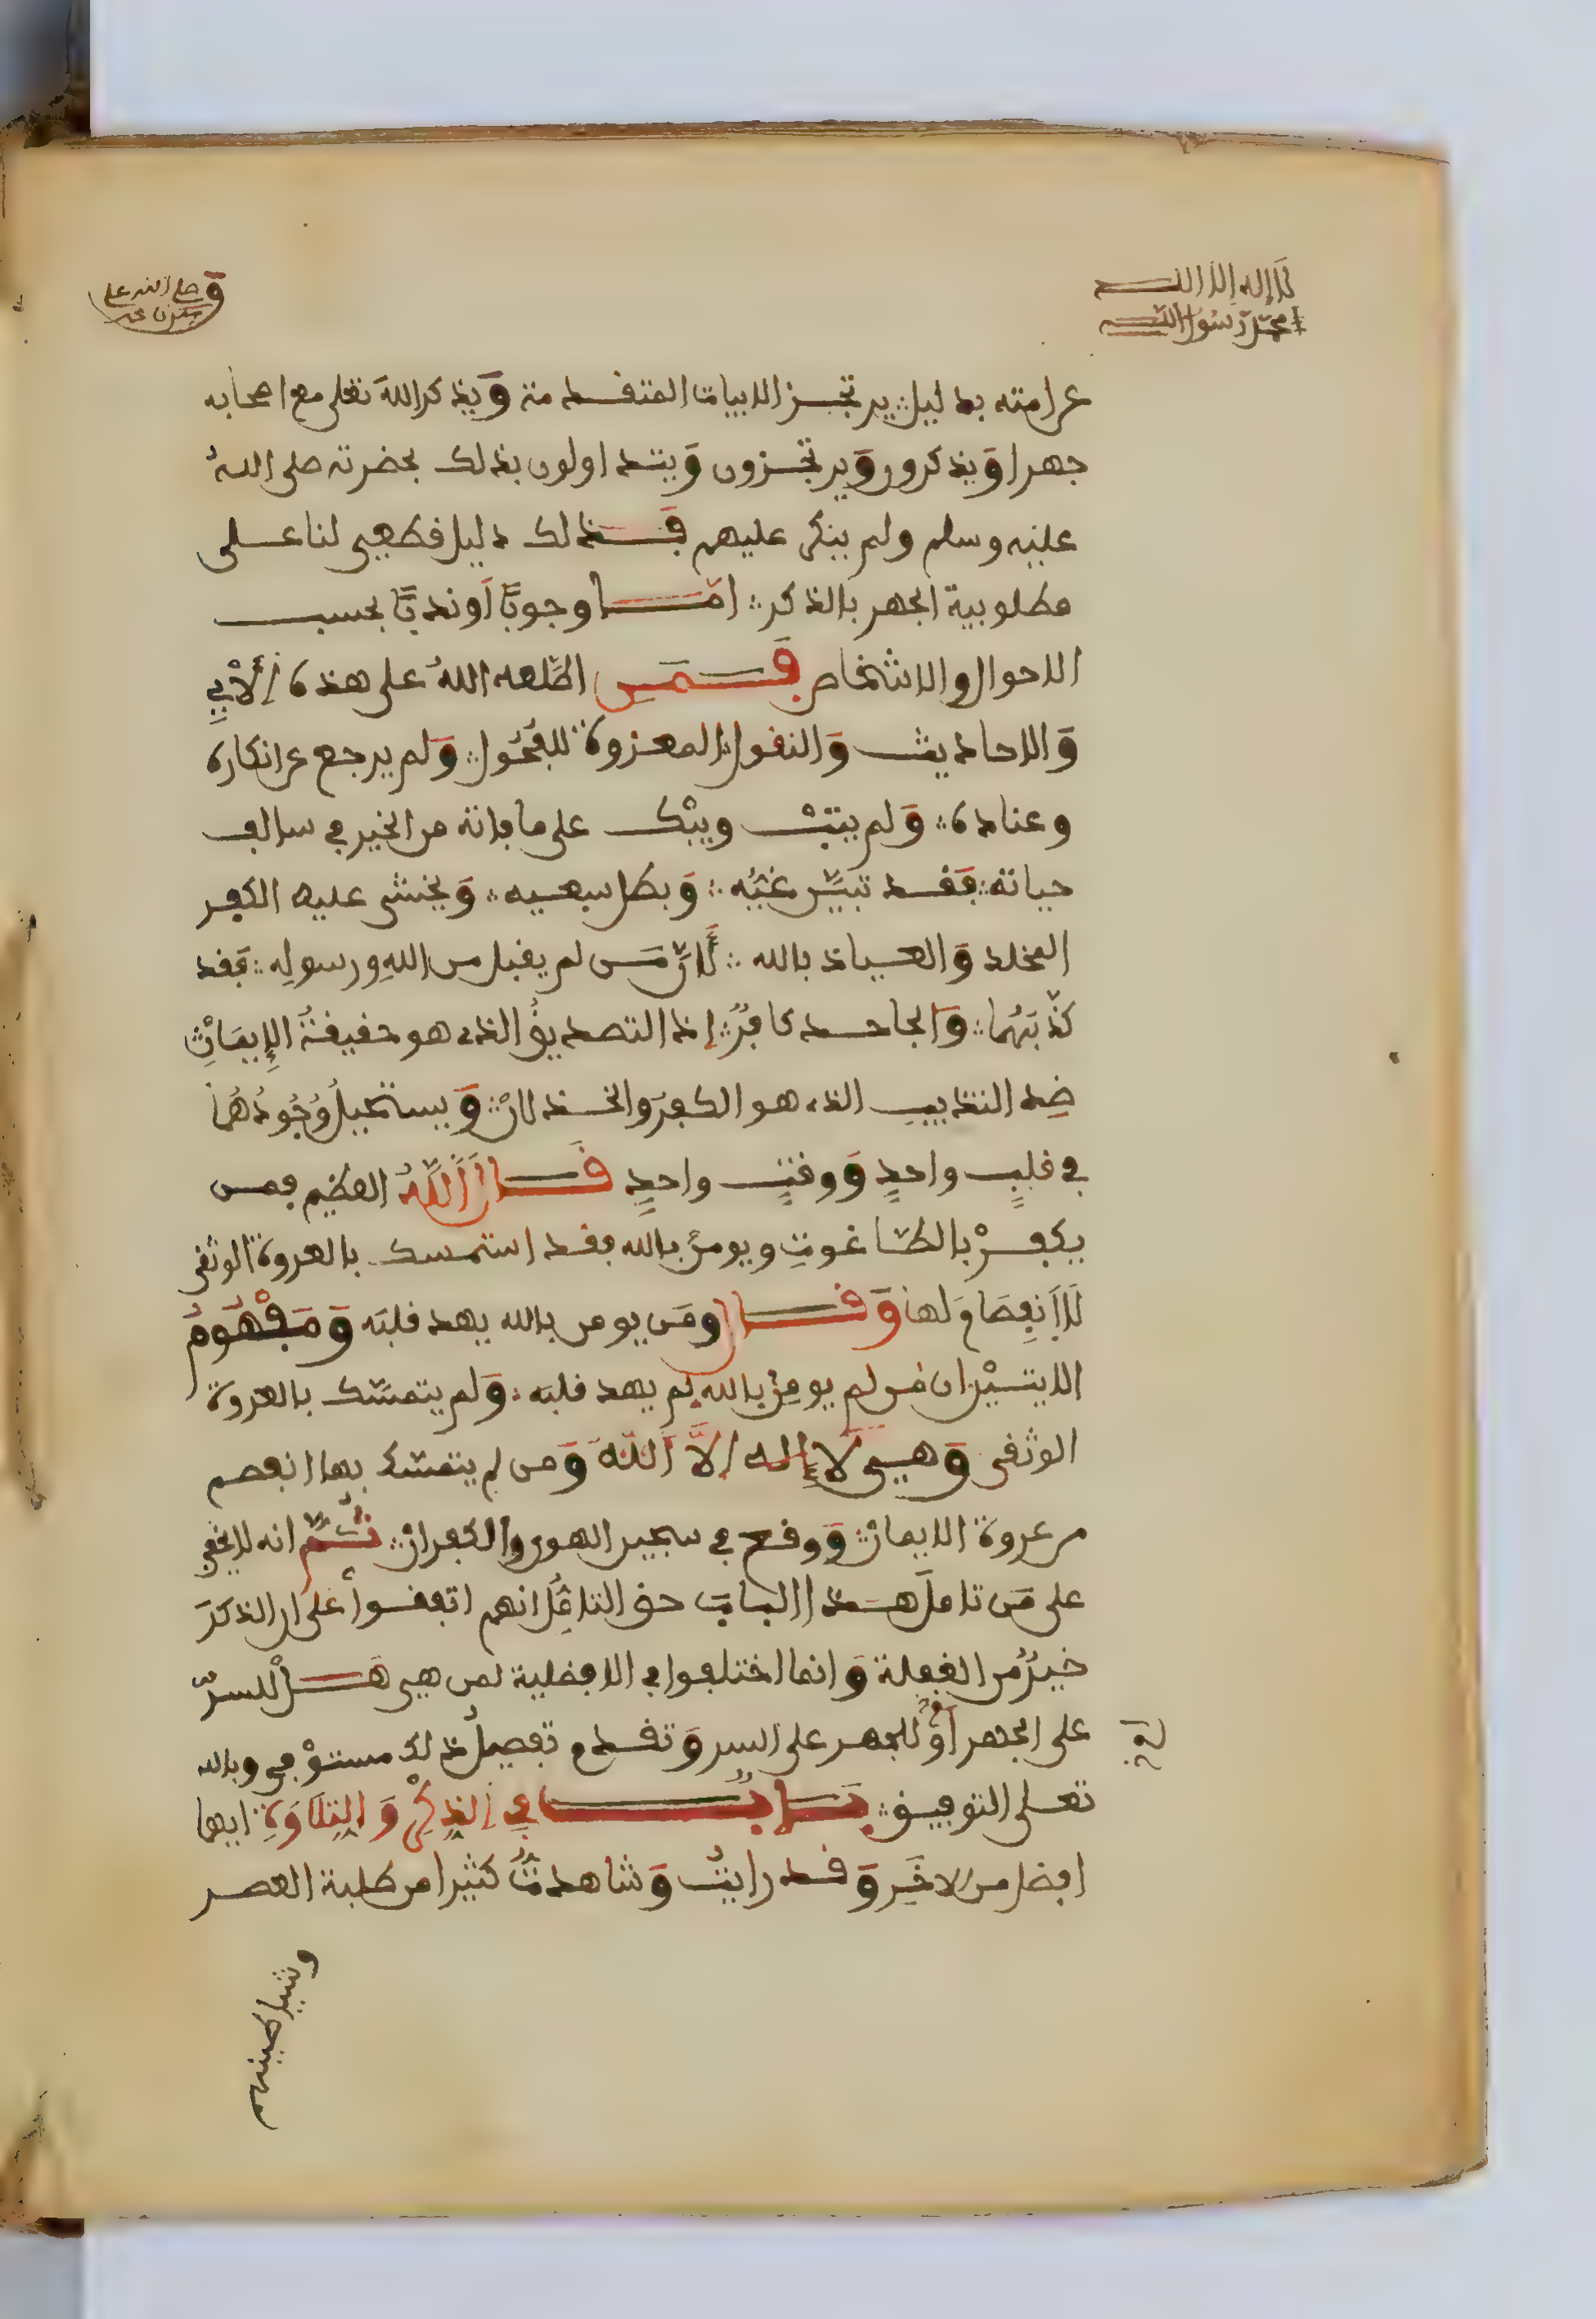 لَا إله إلا الله
محمد رسول الله
صلى الله على
عن امته بدليل يرتجز الابيات المتقدمة وَيذكر اللهَ تعلى مع اصحابه
جهرا وَيذكرون وَيرتجزون وَيتداولون بذلك بحضرته صلى اللهُ
عليه وسلم ولم ينكر عليهم فَذلك دليل قطعي لنا على
مطلوبية الجهر بالذكر؞ امَّا وجوبًا أو ندبًا بحسب
الاحوال والاشخاص فَمَن اطَّلعه اللهُ على هذه الْأَيِ
وَالاحاديث وَالنقول المعزوة للفُحُول؞ وَلم يرجع عن انكاره
وعناده؞ وَلم يتبْ ويبْك على ما فاته من الخير في سالف
حياته؞ فَقد تبَيَّن غيُّه؞ وَبطل سعيه؞ وَيخشى عليه الكفر
المخلد وَالعياذ بالله؞ لَأَنَّ مَن لم يقبل من اللهِ ورسولِه؞ فَقد
كذَّبَهُما؞ وَالجاحد كافِرٌ؞ إذ التصديقُ الذي هو حقيقةُ الإِيمَانِ
ضِد التكذيبِ الذي هو الكفرُ والخذلانْ؞ وَيستحيلُ وُجُودُهُما
في قلبٍ واحدٍ وَوقتٍ واحدٍ قَال اَللَّهُ العظيم فمن
يكفرْ بالطَّاغوتِ ويومنْ بالله فقد استمسك بالعروة الوثقى
لَا اَنفِصَامَ لها وَقَال ومَن يومن بالله يهد قلبَه وَمَفْهُومُ
الايتيْن ان مَن لم يومِنْ بالله لم يهد قلبَه؞ وَلم يتمسَّك بالعروة
الوثقى وَهي لَا إِله إلاَّ اَللَّهُ وَمن لم يتمسَّك بها انفصم
من عروة الايمانْ؞ وَوقع في سجين الهوى والكفرانْ؞ ثُمَّ انه لا يخفى
على مَن تامَلَ هذا البابَ حق التامُّل انهم اتفقوا على ان الذكرَ
خيرٌ من الغفلة وَانما اختلفوا في الافضلية لمن هي هَل للسرِّ
على الجهر أَوْ للجهر على السر وَتقدم تفصيلُ ذلك مستوْفى وبالله
تعلى التوفيق؞ بَابٌ في الذِكْرِ وَالتِلَاوَةِ ايهما
افضل من الاخَرِ وَقد رايتُ وَشاهدتُ كثيرا من طلبة العصر